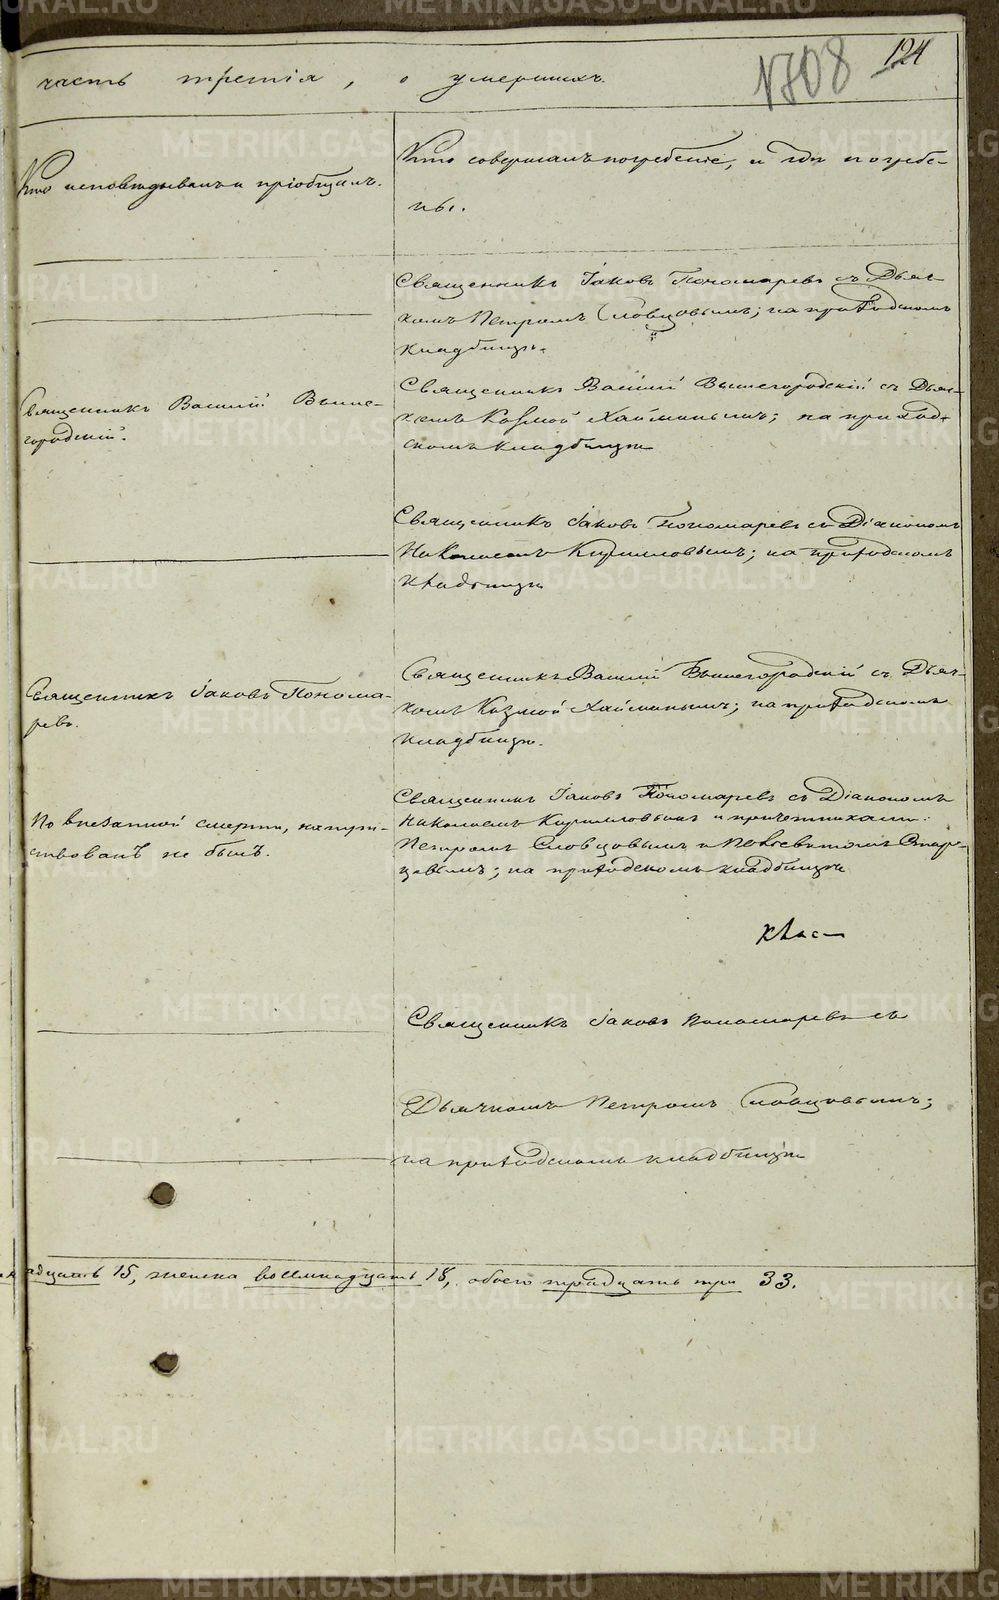 124
1708
часть третія, о умершихъ.
Кто исповѣдывалъ и пріобщалъ.
Кто совершалъ погребеніе, и гдѣ погребе-
ны.
Священникъ Іаковъ Пономаревъ съ Дьяч-
комъ Петромъ Словцовымъ; на приходскомъ
кладбищѣ.
Священникъ Василій Выше-
городскій.
Священникъ Василій Вышегородскій съ Дьяч-
комъ Козмой Хайминымъ; на приход-
скомъ кладбищѣ
Священникъ Іаковъ Пономаревъ съ Діакономъ
Николаемъ Кирилловымъ; на приходскомъ
кладбищѣ
Священникъ Іаковъ Понома-
ревъ.
Священникъ Василій Вышегородскій съ Дьяч-
комъ Козмой Хайминымъ; на приходскомъ
кладбищѣ.
По внезапной смерти, напут-
ствованъ не былъ.
Священникъ Іаковъ Пономаревъ съ Діакономъ
Николаемъ Кирилловымъ и причетниками:
Петромъ Словцовымъ и
на приходскомъ кладбищѣ
Священникъ Іаковъ Пономаревъ съ
Дьячкомъ Петромъ Словцовымъ;
на приходскомъ кладбищѣ
адцать 15, женска восемнадцать 18, обоего тридцать три 33.
METRIKI.GASO-URAL.RU